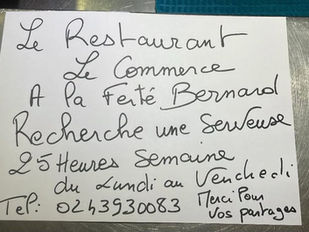 Le Restaurant
Le Commerce
A la Ferté Bernard
Recherche une Serveuse
25 Heures Semaine
du Lundi au Vendredi
Tel: 0243930083 Merci Pour
Vos partages